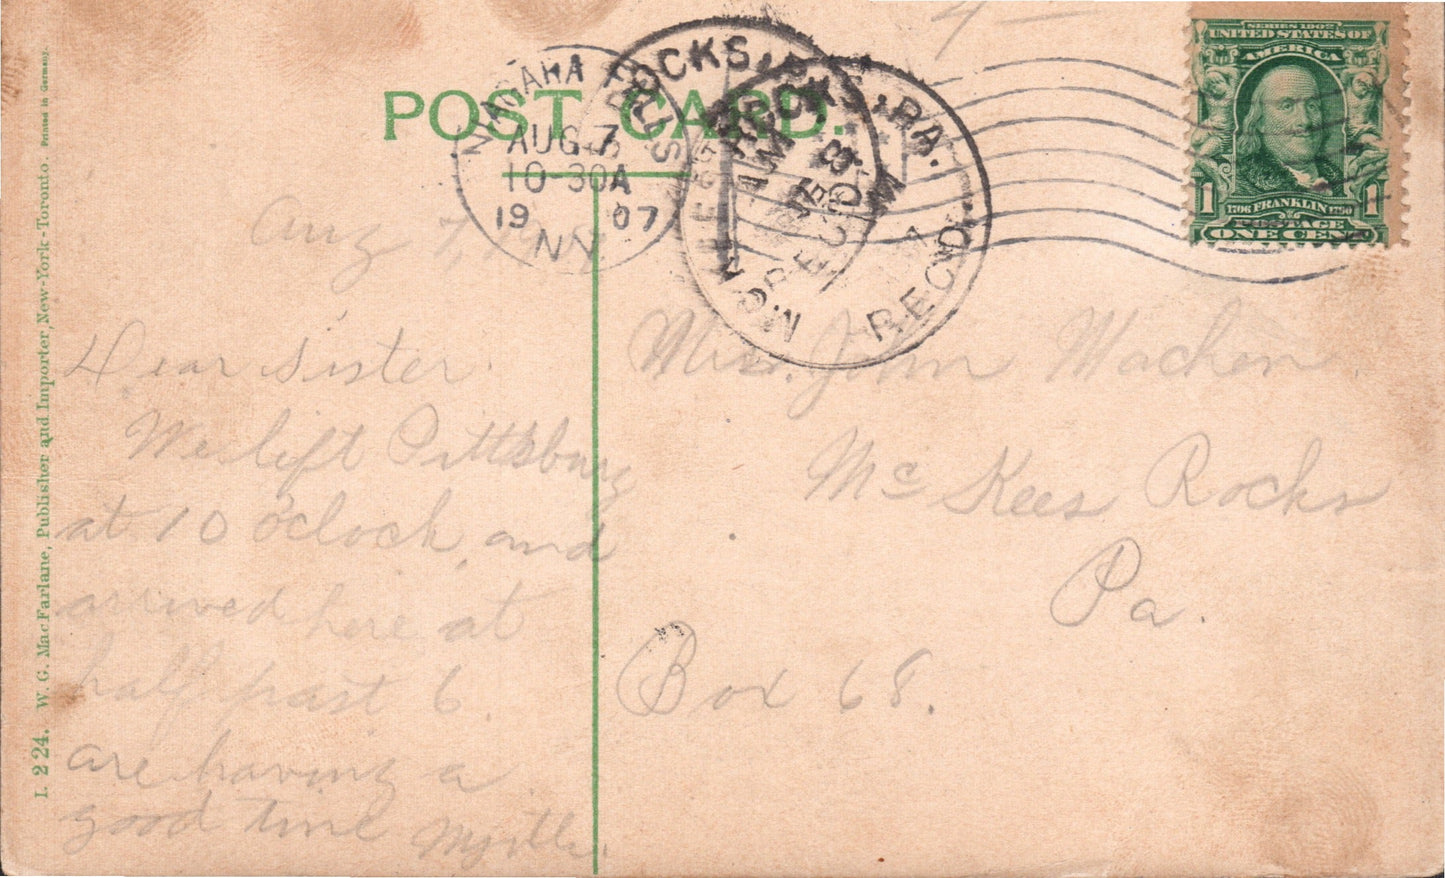 POST CARD.
NIAGARA FALLS
AUG 7
10-30A
1907
N.Y.
ROCKS, PA.
REC'D
SERIES 1902
UNITED STATES OF
AMERICA
1 1
1706 FRANKLIN 1790
POSTAGE
ONE CENT
I. 224. W. G. MacFarlane, Publisher and Importer, New-York-Toronto. Printed in Germany.
Aug 7,
Dear Sister.
We left Pittsburg
at 10 o'clock, and
arrived here at
half past 6.
are having a
good time Myrtle.
John Machen
McKees Rocks
Pa.
Box 68.